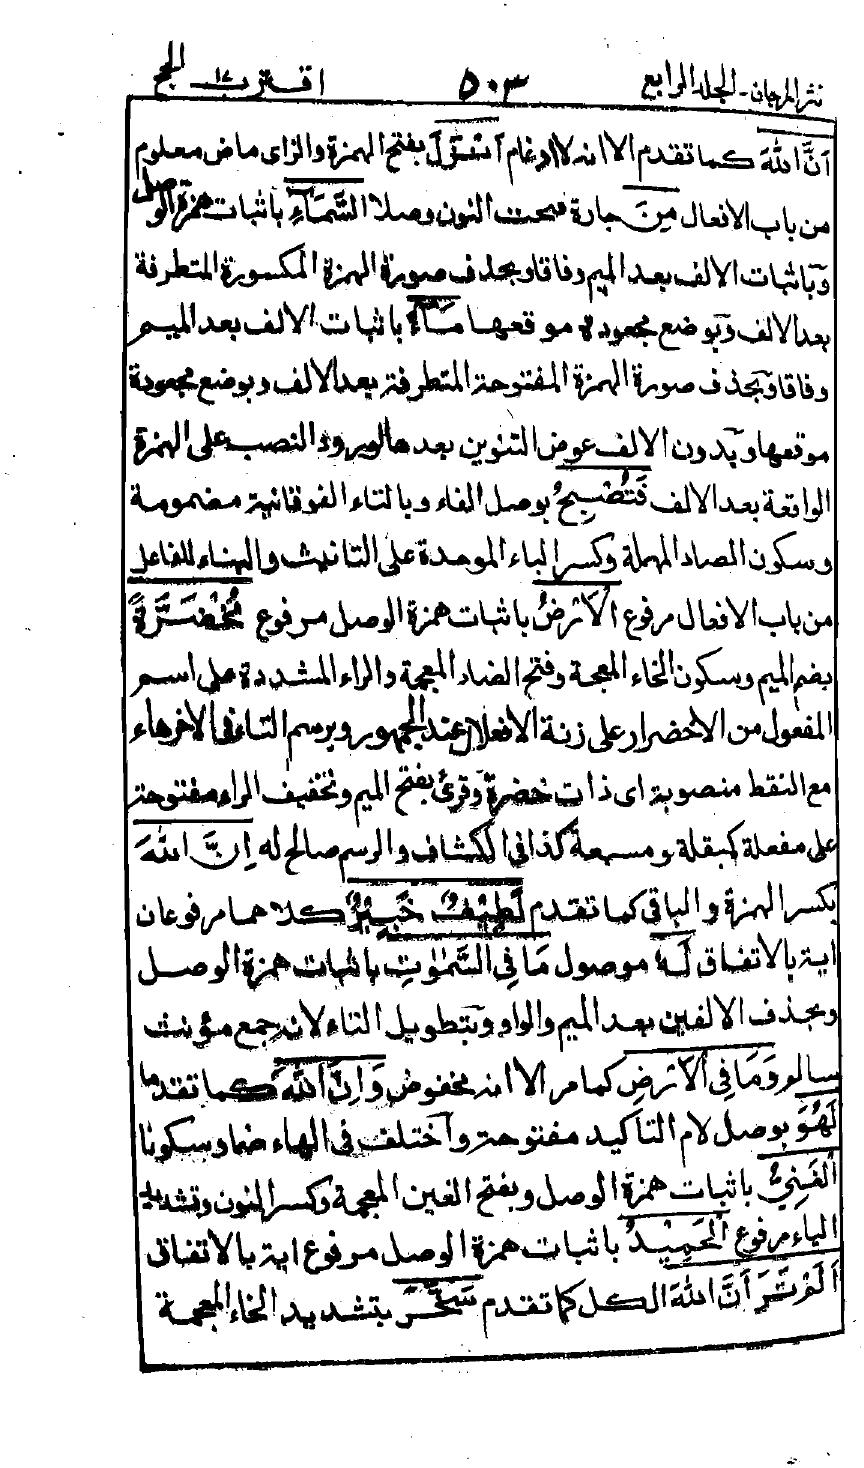 نثر المرجان - الجلد الرابع ٥٠٣ اقترب ١٧ الحج
اَنَّ اللّٰهَ كما تقدم الا انه لا ادغام اَنْزَلَ بفتح الهمزة والزاى ماض معلوم
من باب الافعال مِنَ جارة فتحت النون وصلا السَّمَآءِ باثبات همزة الوصل
وبآثبات الالف بعد الميم وفاقا وبحذف صورة الهمزة المكسورة المتطرفة
بعد الالف وبوضع مجعودة موقعها مَآءً باثبات الالف بعد الميم
وفاقا وبحذف صورة الهمزة المفتوحة المتطرفة بعد الالف وبوضع مجعودة
موقعها وبدون الالف عوض التنوين بعدها لورود النصب على الهمزة
الواقعة بعد الالف فَتُصْبِحُ بوصل الفاء وبالتاء الفوقانية مضمومة
وسكون الصاد المهملة وكسر الباء الموحدة على التانيث والبناء للفاعل
من باب الافعال مرفوع الْاَرْضُ باثبات همزة الوصل مرفوع مُخْضَرَّةً
بضم الميم وسكون الخاء المعجمة وفتح الضاد المعجمة والراء المشددة على اسم
المفعول من الاخضرار على زنة الافعلال عند الجمهور وبرسم التاء فى الاخر هاء
مع النقط منصوبة اى ذات خضرة وقرئ بفتح الميم وتخفيف الراء مفتوحة
على مفعلة كمبقلة ومسبعة كذا فى الكشاف والرسم صالح له اِنَّ اللّٰهَ
بكسر الهمزة والباقى كما تقدم لَطِيْفٌ خَبِيْرٌ كلاهما مرفوعان
اية بالاتفاق لَهٗ موصول مَا فِى السَّمٰوٰتِ باثبات همزة الوصل
وبحذف الالفين بعد الميم والواو وبتطويل التاء لانه جمع مؤنث
سالم وَمَا فِى الْاَرْضِ كما مر الا انه مخفوض وَاِنَّ اللّٰهَ كما تقدما
لَهُوَ بوصل لام التاكيد مفتوحة وآختلف فى الهاء ضما وسكونا
الْغَنِىُّ باثبات همزة الوصل وبفتح الغين المعجمة وكسر النون وتشديد
الياء مرفوع الْحَمِيْدُ باثبات همزة الوصل مرفوع اية بالاتفاق
اَلَمْ تَرَ اَنَّ اللّٰهَ الكل كما تقدم سَخَّرَ بتشديد الخاء المعجمة